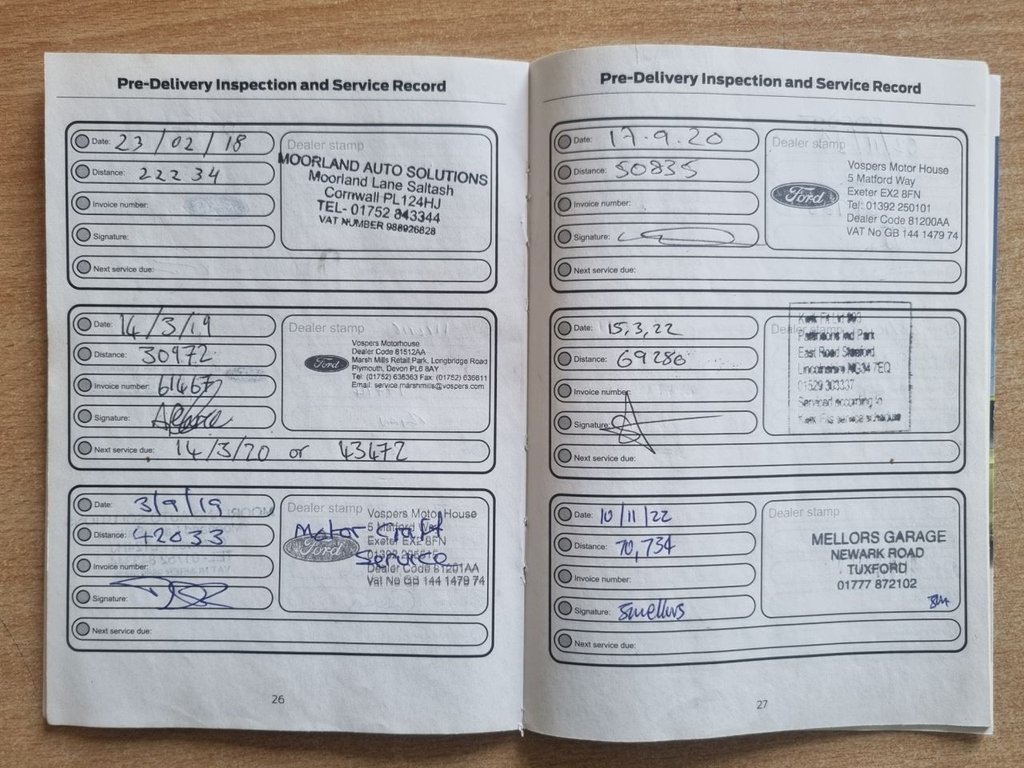 Pre-Delivery Inspection and Service Record
Date: 23/02/18
Distance: 22234
Invoice number:
Signature:
Next service due:
Dealer stamp
MOORLAND AUTO SOLUTIONS
Moorland Lane Saltash
Cornwall PL124HJ
TEL- 01752 843344
VAT NUMBER 988926828
Date: 14/3/19
Distance: 30972
Invoice number: 61467
Signature:
Next service due: 14/3/20 or 43472
Dealer stamp
Ford
Vospers Motorhouse
Dealer Code 61512AA
Marsh Mills Retail Park, Longbridge Road
Plymouth, Devon PL6 8AY
Tel: (01752) 636363 Fax: (01752) 636611
Email: service.marshmills@vospers.com
Date: 3/9/19
Distance: 42033
Invoice number:
Signature:
Next service due:
Dealer stamp
Ford
Vospers Motor House
5 Matford Way
Exeter EX2 8FN
Dealer Code 81201AA
Vat No GB 144 1479 74
Motor Craft
Service
26
Pre-Delivery Inspection and Service Record
Date: 17.9.20
Distance: 50835
Invoice number:
Signature:
Next service due:
Dealer stamp
Ford
Vospers Motor House
5 Matford Way
Exeter EX2 8FN
Tel: 01392 250101
Dealer Code 81200AA
VAT No GB 144 1479 74
Date: 15,3,22
Distance: 69286
Invoice number:
Signature:
Next service due:
Dealer stamp
East Road Sleaford
Lincolnshire NG34 7EQ
01529 303337
Serviced according to
Date: 10/11/22
Distance: 70,734
Invoice number:
Signature: Smellors
Next service due:
Dealer stamp
MELLORS GARAGE
NEWARK ROAD
TUXFORD
01777 872102
27